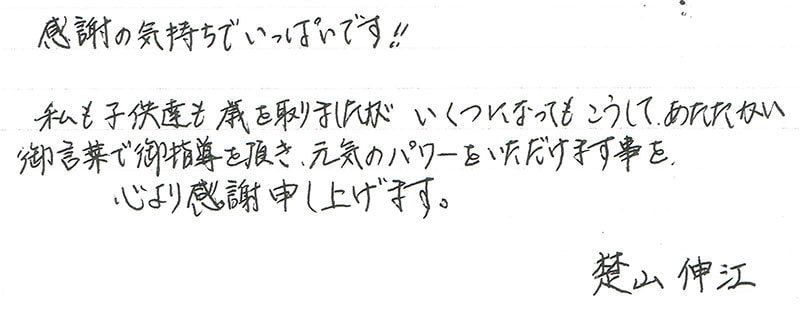 感謝の気持ちでいっぱいです!!
私も子供達も歳を取りましたが いくつになってもこうして、あたたかい
御言葉で御指導を頂き、元気のパワーをいただけます事を、
心より感謝申し上げます。
楚山 伸江